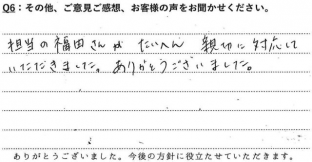 Q6：その他、ご意見ご感想、お客様の声をお聞かせください。
担当の福田さんが たいへん 親切に対応して
いただきました。ありがとうございました。
ありがとうございました。今後の方針に役立たせていただきます。